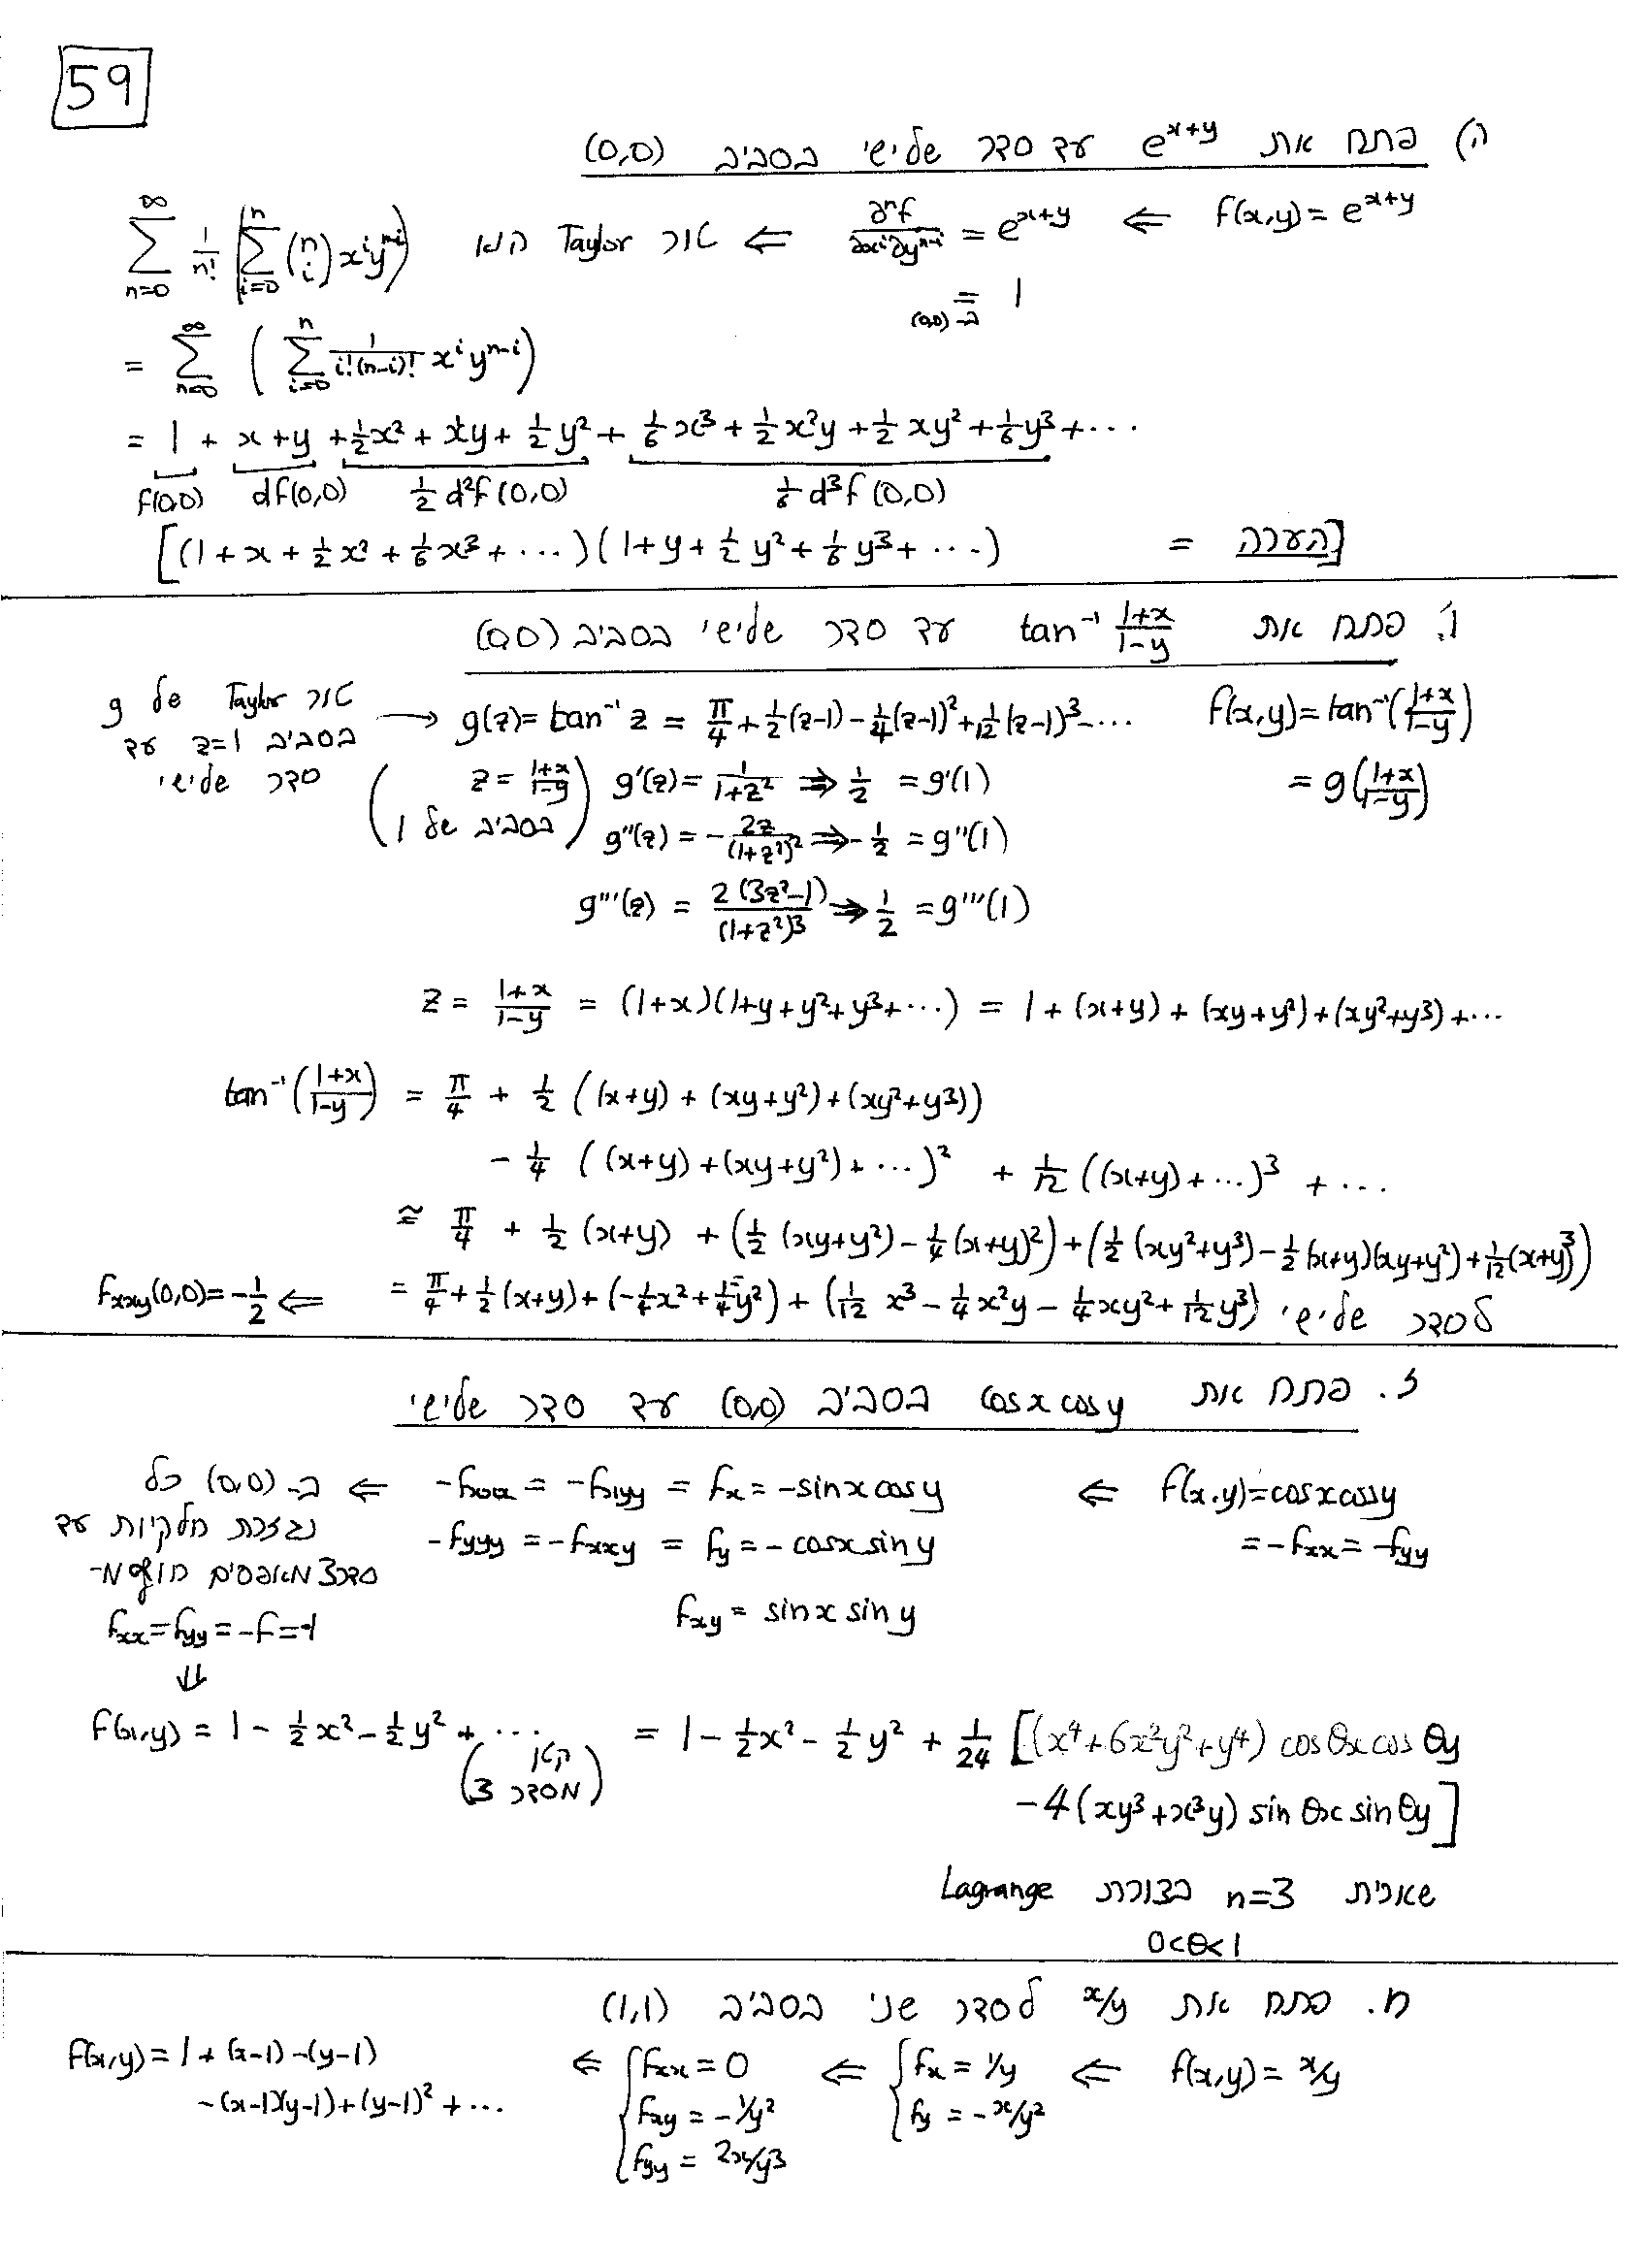 59
ה) פתח את e^{x+y} עד סדר שלישי בסביב (0,0)
f(x,y) = e^{x+y} ⇐ ∂ⁿf/∂xⁱ∂yⁿ⁻ⁱ = e^{x+y} ⇐ טור Taylor הנו ∑_{n=0}^{∞} 1/n! (∑_{i=0}^{n} (n i) xⁱyⁿ⁻ⁱ)
= 1
ב- (0,0)
= ∑_{n=0}^{∞} ( ∑_{i=0}^{n} 1/i!(n-i)! xⁱ yⁿ⁻ⁱ )
= 1 + x+y + ½x² + xy + ½y² + ⅙x³ + ½x²y + ½xy² + ⅙y³ + ⋯
f(0,0) df(0,0) ½d²f(0,0) ⅙d³f(0,0)
[הערה = (1+x+½x²+⅙x³+⋯)(1+y+½y²+⅙y³+⋯)]
ו. פתח את tan⁻¹ (1+x)/(1-y) עד סדר שלישי בסביב (0,0)
f(x,y) = tan⁻¹((1+x)/(1-y)) g(z) = tan⁻¹ z = π/4 + ½(z-1) - ¼(z-1)² + 1/12(z-1)³ - ⋯ ← טור Taylor של g
בסביב z=1 עד
סדר שלישי
= g((1+x)/(1-y)) g'(z) = 1/(1+z²) ⇒ ½ = g'(1) ( z = (1+x)/(1-y)
בסביב של 1 )
g''(z) = - 2z/(1+z²)² ⇒ -½ = g''(1)
g'''(z) = 2(3z²-1)/(1+z²)³ ⇒ ½ = g'''(1)
z = (1+x)/(1-y) = (1+x)(1+y+y²+y³+⋯) = 1 + (x+y) + (xy+y²) + (xy²+y³) + ⋯
tan⁻¹((1+x)/(1-y)) = π/4 + ½((x+y) + (xy+y²) + (xy²+y³))
- ¼ ((x+y) + (xy+y²) + ⋯)² + 1/12 ((x+y) + ⋯)³ + ⋯
≈ π/4 + ½(x+y) + (½(xy+y²) - ¼(x+y)²) + (½(xy²+y³) - ½(x+y)(xy+y²) + 1/12(x+y)³)
f_{xxy}(0,0) = -½ ⇐ = π/4 + ½(x+y) + (-¼x² + ¼y²) + (1/12 x³ - ¼x²y - ¼xy² + 1/12 y³) לסדר שלישי
ז. פתח את cosx cosy בסביב (0,0) עד סדר שלישי
f(x,y) = cosx cosy ⇐ -f_{xxx} = -f_{xyy} = f_x = -sinx cosy ⇐ ב- (0,0) כל
= -f_{xx} = -f_{yy} -f_{yyy} = -f_{xxy} = f_y = -cosx siny נגזרת חלקיות עד
סדר 3 מאפסים חוץ מ-
f_{xy} = sinx siny f_{xx} = f_{yy} = -f = -1
⇓
f(x,y) = 1 - ½x² - ½y² + ⋯ (קטן מסדר 3) = 1 - ½x² - ½y² + 1/24 [(x⁴+6x²y²+y⁴) cosθx cosθy
- 4(xy³+x³y) sinθx sinθy]
שארית n=3 בצורת Lagrange
0<θ<1
ח. פתח את x/y לסדר שני בסביב (1,1)
f(x,y) = x/y ⇐ { f_x = 1/y ⇐ { f_{xx} = 0 ⇐ f(x,y) = 1 + (x-1) - (y-1)
f_y = -x/y² f_{xy} = -1/y² - (x-1)(y-1) + (y-1)² + ⋯
f_{yy} = 2x/y³